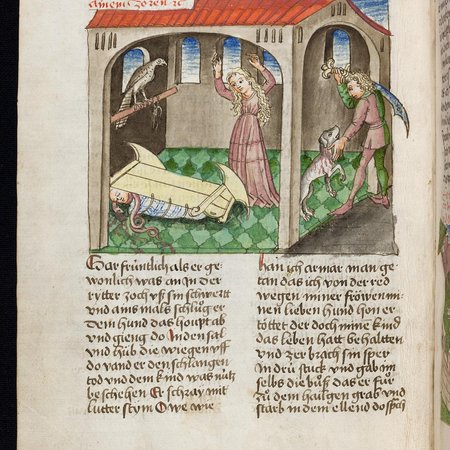 zoren
Gar früntlich als er ge
wonlich was an In der
rytter zoch uß sin schwertt
und ains mals schlůg er
dem hund das houpt ab
und gieng do In den sal
und hůb die wiegen uff
do vand er den schlangen
tod und dem kind was nütz
beschehen Er schray mit
lutter stym O we wie
han ich armar man ge
tan das ich von der red
wegen miner fröwen mi
nen lieben hund hon er
töttet der doch mine kind
das leben hatt behalten
und zer brach sin sper
In drü stuck und gab im
selbs die bůß das er fůr
zů dem hailgen grab und
starb in dem ellend do